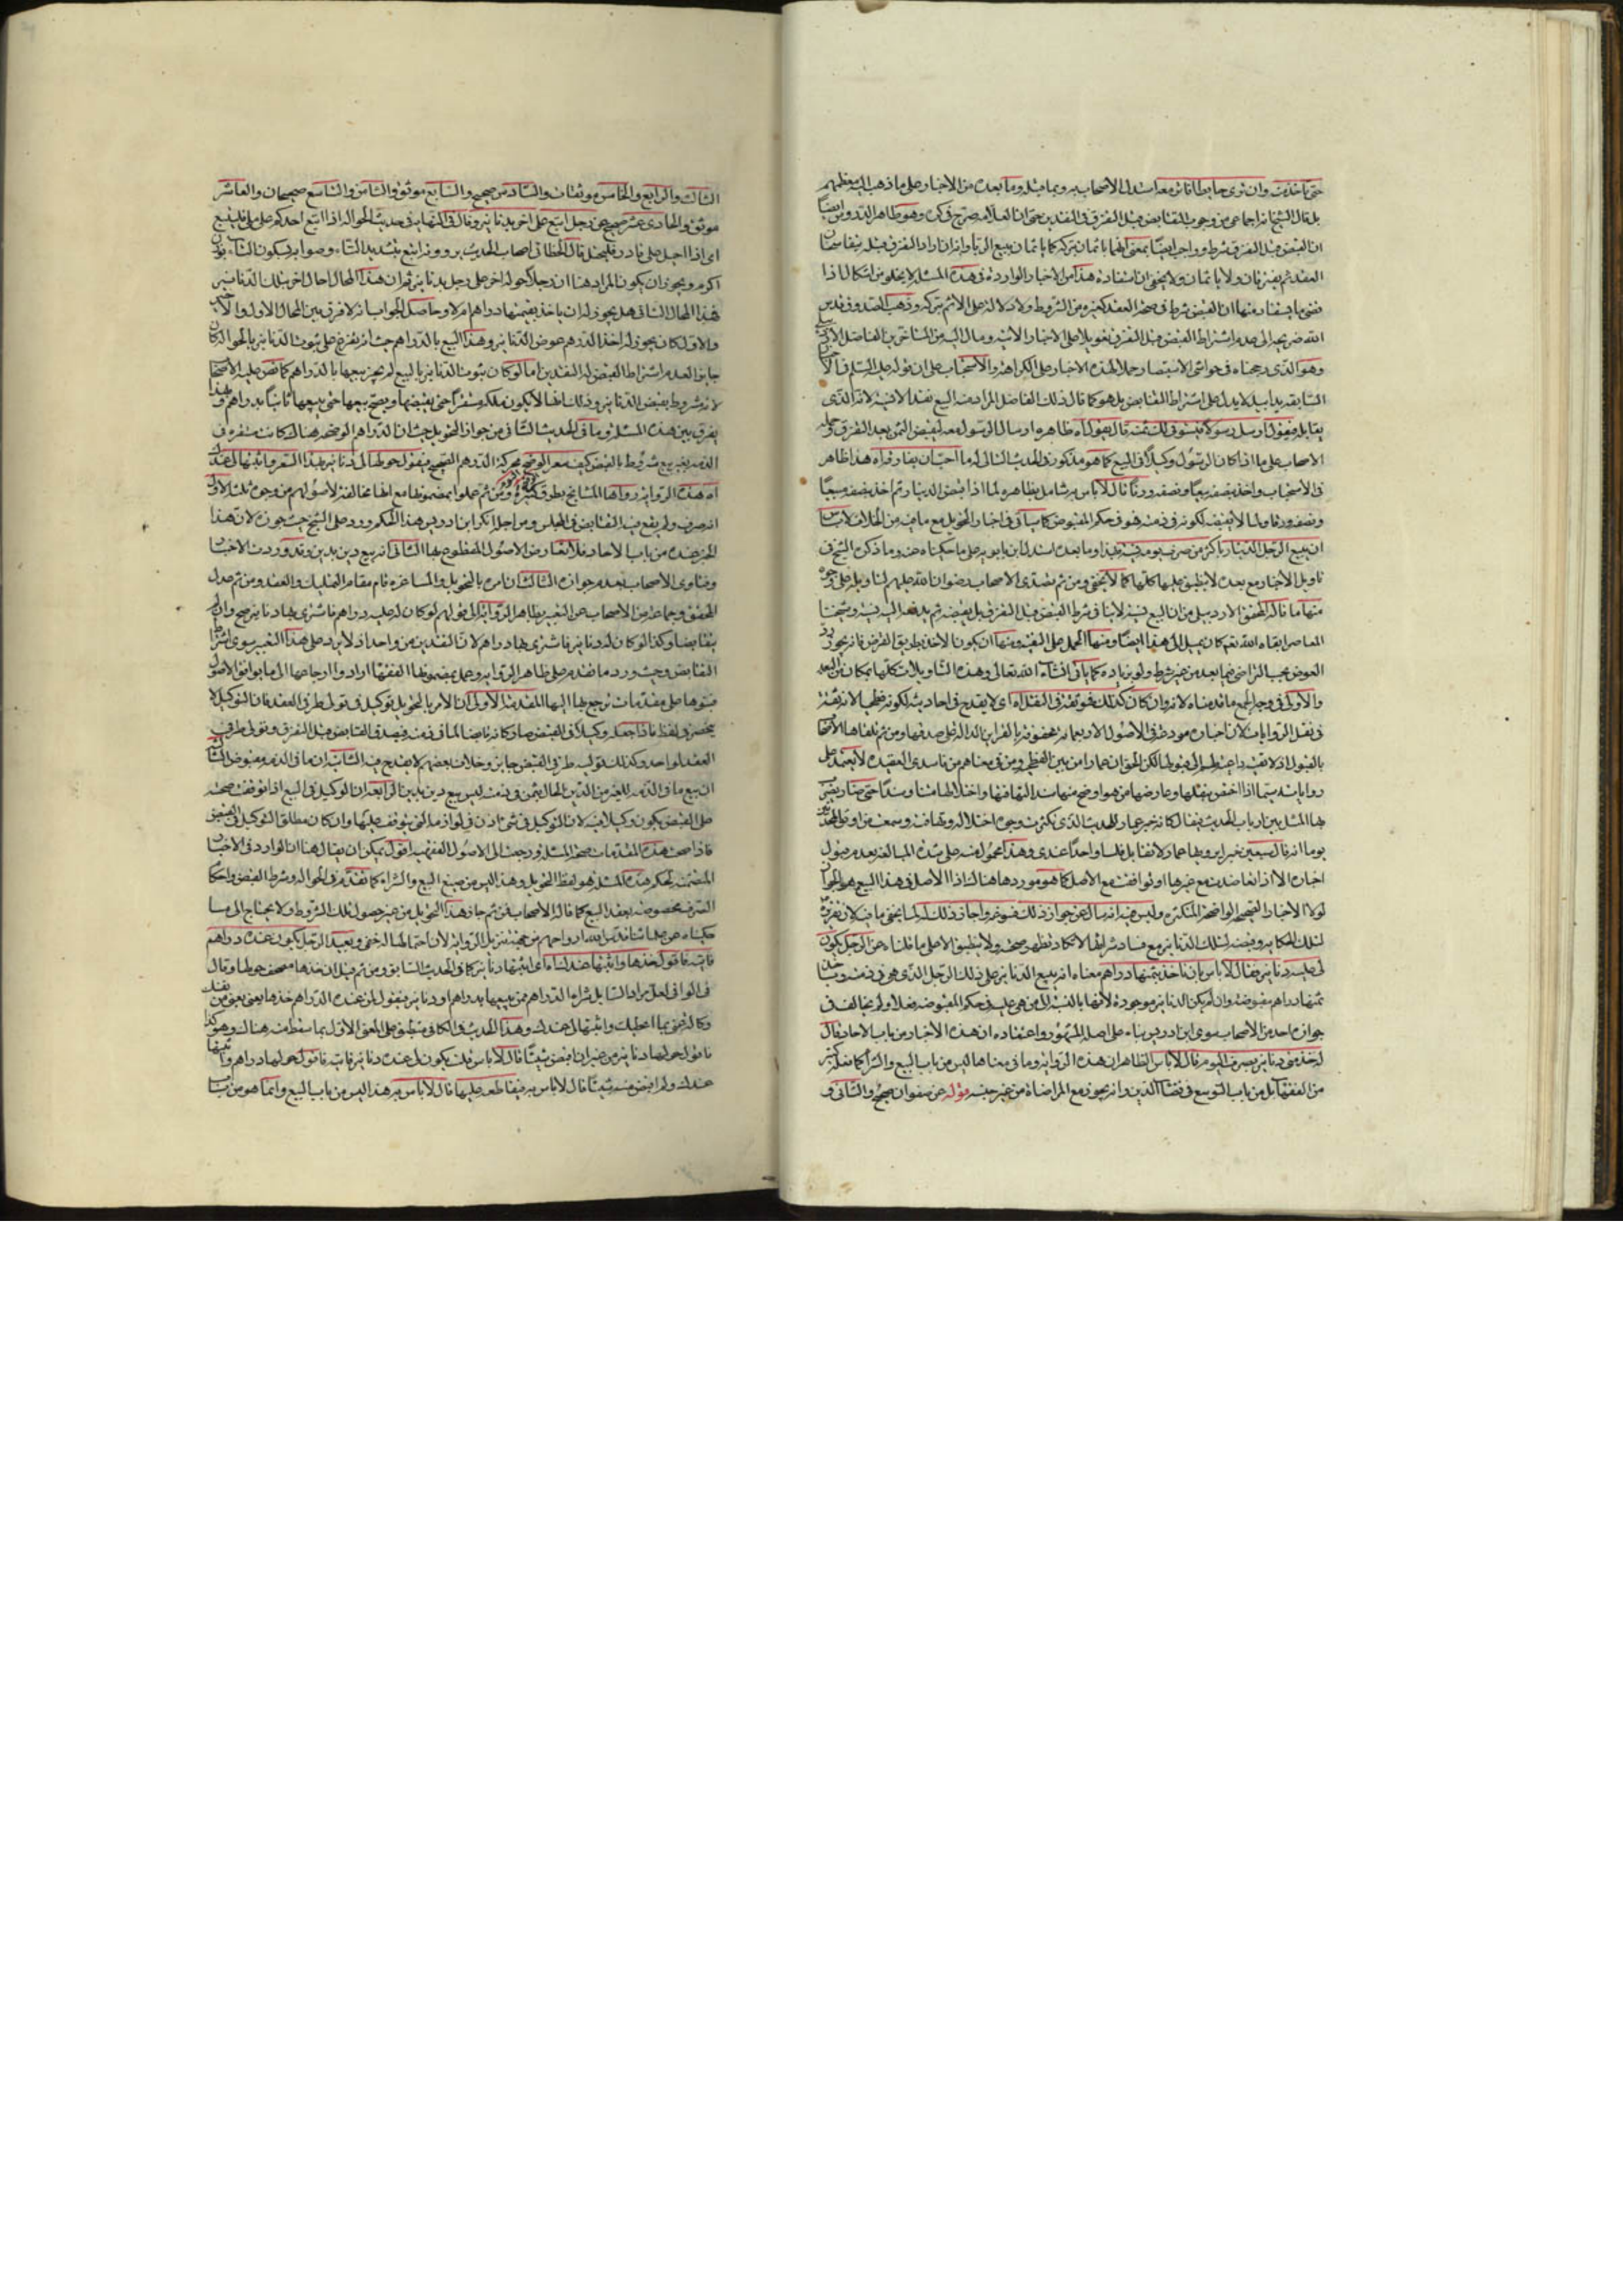 حتى تأخذ منه وان نزى حايطا فانز معه استدل الاصحاب به وبما قبله وما بعده من الاخبار على ما ذهب اليه معظمهم
بل قال الشيخ انه اجماعي من وجوب التقابض قبل التفرق في النقدين حتى ان العلامة صرح في كره وهو ظاهر الدروس ايضا
ان القبض قبل التفرق شرط وواجب ايضا بمعنى انهما ياثمان بتركه كما ياثمان ببيع الربا وانه ان اراد التفرق قبله يتفاسخان
العقد ثم يفترقان ولا ياثمان ولا يخفى ان استفادة هذا من الاخبار الواردة في هذه المسئلة لا يخلو من اشكال اذا
قصى ما يستفاد منها ان القبض شرط في صحة العقد كغيره من الشروط ولا دلالة على الاثم بتركه وذهب الصدوق قدس
الله ضريحه الى عدم اشتراط القبض قبل التفرق تعويلا على الاخبار الاتية ومال اليه من المتاخرين الفاضل الاردبيلي
وهو الذي رجحناه في حواشي الاستبصار وحملا لهذه الاخبار على الكراهة والاستحباب على ان قوله عليه السلم في الاخبار
السابقة يدا بيد لا يدل على اشتراط التقابض بل هو كما قال ذلك الفاضل المراد منه البيع نقدا لا نسية لانه الذي
يقابله فيقول ارسل رسولا فيستوفي لك ثمنه قال يقول اه ظاهره ارسال الرسول معه لقبض الثمن بعد التفرق وحمله
الاصحاب على ما اذا كان الرسول وكيلا في البيع كما هو مذكور في الحديث التالي له ما احب ان يفارقه اه هذا ظاهر
في الاستحباب واخذ بنصفه بيعا ونصفه ورقا قال لا باس به شامل بظاهره لما اذا قبض الدينار ثم اخذ بنصفه مبيعا
ونصفه ورقا ولما لا يقبضه لكونه في ذمته فهو في حكم المقبوض كما ياتي في اخبار التحويل مع ما فيه من الخلاف لا باس
ان يبيع الرجل الدينار باكثر من صرف يومه نسية بهذا وما بعده استدل ابن بابويه على ما حكيناه عنه وما ذكره الشيخ في
تاويل الاخبار مع بعده لا ينطبق عليها كلها كما لا يخفى ومن ثم تصدى الاصحاب رضوان الله عليهم لتاويله على وجوه
منها ما قاله المحقق الاردبيلي من ان البيع نسية لا ينافي شرط القبض قبل التفرق بل يقبضه ثم يدفعه اليه نسية وشيخنا
المعاصر ابقاه الله تعالى كان يميل الى هذا ايضا ومنها الحمل على التقية ومنها ان يكون الاخذ بطريق القرض فانه يجوز رد
العوض بحسب التراضي فيما بعد من غير شرط ولو بزيادة كما ياتي انشاء الله تعالى وهذه التاويلات كلها بمكان من البعد
والاولى في وجه الجمع ما قدمناه لانه وان كان كذلك فهو ثقة في النقل اه اي لا يقدح في احاديثه لكونه فطحيا لانه ثقة
في نقل الروايات لان اخباره مودعة في الاصول الاربعمائة محفوفة بالقراين الدالة على صدقها ومن ثم تلقاها الاصحاب
بالقبول
روايات
بها المسئلة بين ارباب الحديث
يوما انه قال سبعين خبرا يرويها عمار لا تقابل فلسا واحدا عندي وهذا محمول منه على شدة المبالغة بعدم قبول
اخباره الا اذا تعاضدت مع غيرها او توافقت مع الاصل كما هو موردها هنا لان الاصل في هذا البيع هو الجواز
لولا الاخبار الصحيحة الواضحة المتكثرة وليس فيه انه سال عن جواز ذلك
لتلك الحكاية
لي عليه دنانير فقال لا باس بان ناخذ بثمنها دراهم معناه انه يبيع الدنانير على ذلك الرجل الذي هي في ذمته وياخذ
ثمنها دراهم مقبوضة وان لم يكن الدنانير موجودة لانها بالنسبة الى من هي عليه في حكم المقبوضة فعلا ولم يخالف في
جوازه احد من الاصحاب سوى ابن ادريس بناء على اصله المشهور واعتقاده ان هذه الاخبار من باب الاحاد فقال
له خذ مني دنانير بصرف اليوم قال لا باس الظاهر ان هذه الرواية وما في معناها ليس من باب البيع والشراء كما فعله كثير
من الفقها بل من باب التوسع في قضاء الدين وانه يجوز مع المراضاة من غير جنسه قوله عن صفوان صحيح والثاني و
الثالث والرابع والخامس موثقات والسادس صحيح والسابع موثق والثامن والتاسع صحيحان والعاشر
موثق والحادي عشر صحيح عن رجل اتبع على اخر بدنانير وقال في النهاية في حديث الحوالة اذا اتبع احدكم على ملي فليتبع
اي اذا احيل على قادر فليحتل قال الخطابي اصحاب الحديث يروونه اتبع بتشديد التاء وصوابه بسكون التاء بوزن
اكرم ويجوز ان يكون المراد هنا ان رجلا حوله اخر على رجل بدنانير ثم ان هذا المحال احال اخر بتلك الدنانير
فهذا المحال الثاني هل يجوز له ان ياخذ بقيمتها دراهم ام لا وحاصل الجواب انه لا فرق بين المحال الاول والاخير
والاول كان يجوز له اخذ الدراهم عوض الدنانير وهذا البيع بالدراهم حيث انه يفرع على ثبوت الدنانير بالحوالة كان
جايزا لعدم اشتراط القبض له النقدين اما لو كان ثبوت الدنانير بالبيع لم يجز بيعها بالدراهم كما نص عليه الاصحاب
لانه مشروط بقبض الدنانير وذلك انها لا يكون ملكه مستقرا حتى يقبضها ويصح بيعها حتى يبيعها ثانيا بدراهم وبهذا
يفرق بين هذه المسئلة وما في الحديث الثاني من جواز التحويل حيث ان الدراهم الوضحة هناك كانت مستقرة في
الذمة بغير بيع مشروط بالقبض
اه هذه الرواية رواها المشايخ بطرق كثيرة ومن ثم عملوا بمضمونها مع انها مخالفة لاصولهم من وجوه ثلثة الاول
انه صرف ولم يقع فيه التقابض في المجلس ومن اجله انكر ابن ادريس هذا الحكم ورد على الشيخ حيث جوزه لان هذا
الخبر عنده من باب الاحاد فلا تعارض الاصول المقطوع بها الثاني انه بيع دين بدين وقد وردت الاخبار
وفتاوى الاصحاب بعدم جوازه الثالث ان امره بالتحويل والمساعرة قام مقام التمليك والعقد ومن ثم عدل
المحقق وجماعة من الاصحاب عن التعبير بظاهر الرواية الى قولهم لو كان له عليه دراهم فاشترى بها دنانير صح وان لم
يتقابضا وكذا لو كان له دنانير فاشترى بها دراهم لان النقدين من واحد اذ لا يرد على هذا التعبير سوى اشتراط
التقابض وحيث ورد ما تقدم على ظاهر الرواية وعمل بمضمونها الفقها ارادوا ارجاعها الى ما يوافق الاصول
فبنوها على مقدمات ترجع بها اليها المقدمة الاولى ان الامر بالتحويل توكيل في تولي طرفي العقد فان التوكيل لا
ينحصر في لفظ فاذا جعله وكيلا في القبض صار كانه قابض لما في ذمته فيصدق التقابض قبل التفرق وتولي طرفي
العقد لواحد وكذلك توليه طرفي القبض جايز وخلاف بعضهم لا يقدح فيه الثانية ان ما في الذمة مقبوض الثالثة
ان بيع ما في الذمة للغير من الدين الحال بثمن في ذمته ليس بيع دين بدين الرابعة ان الوكيل في البيع اذا توقفت صحته
على القبض يكون وكيلا فيه لان التوكيل في شيء اذن في لوازمه التي يتوقف عليها وان كان مطلق التوكيل لا يقتضيه
فاذا صحت هذه المقدمات صحت المسئلة ورجعت الى الاصول الفقهية اقول يمكن ان يقال هنا ان الوارد في الاخبار
المتضمنة لحكم هذه المسئلة هو لفظ التحويل وهذا ليس من صيغ البيع والشراء كما تقدم في الحوالة وشرط القبض واحكام
الصرف مخصوصة بعقد البيع كما قاله الاصحاب فمن ثم جاز هذا التحويل من غير حصول تلك الشروط ولا يحتاج الى ما
حكيناه عن علمائنا قدس الله ارواحهم من تجشم تنزيل الرواية لان احتمالها له خفي وبعيد الرجل يكون عنده دراهم
فاتيه فاقول خذها واثبتها عندك اه اي اثبتها دنانير كما في الحديث السابق ومن ثم قيل ان خذها مصحف حولها وقال
في الوافي لعل مراد السايل شراء الدراهم ممن يبيعها بدراهم او دنانير فيقول لمن عنده الدراهم خذها يعني بعني من نفسك
وكالة عني بما اعطيك واثبتها لي عندك وهذا الحديث في الكافي منطبق على المعنى الاول بما سقط منه هناك وهو كذا
فاقول حولها دنانير من غير ان اقبض شيئا قال لا باس قلت يكون لي عنده دنانير فاتيه فاقول حولها دراهم واثبتها
عندك ولم اقبض منه شيئا قال لا باس به فقاطعه عليها قال لا باس به هذا ليس من باب البيع وانما هو من باب